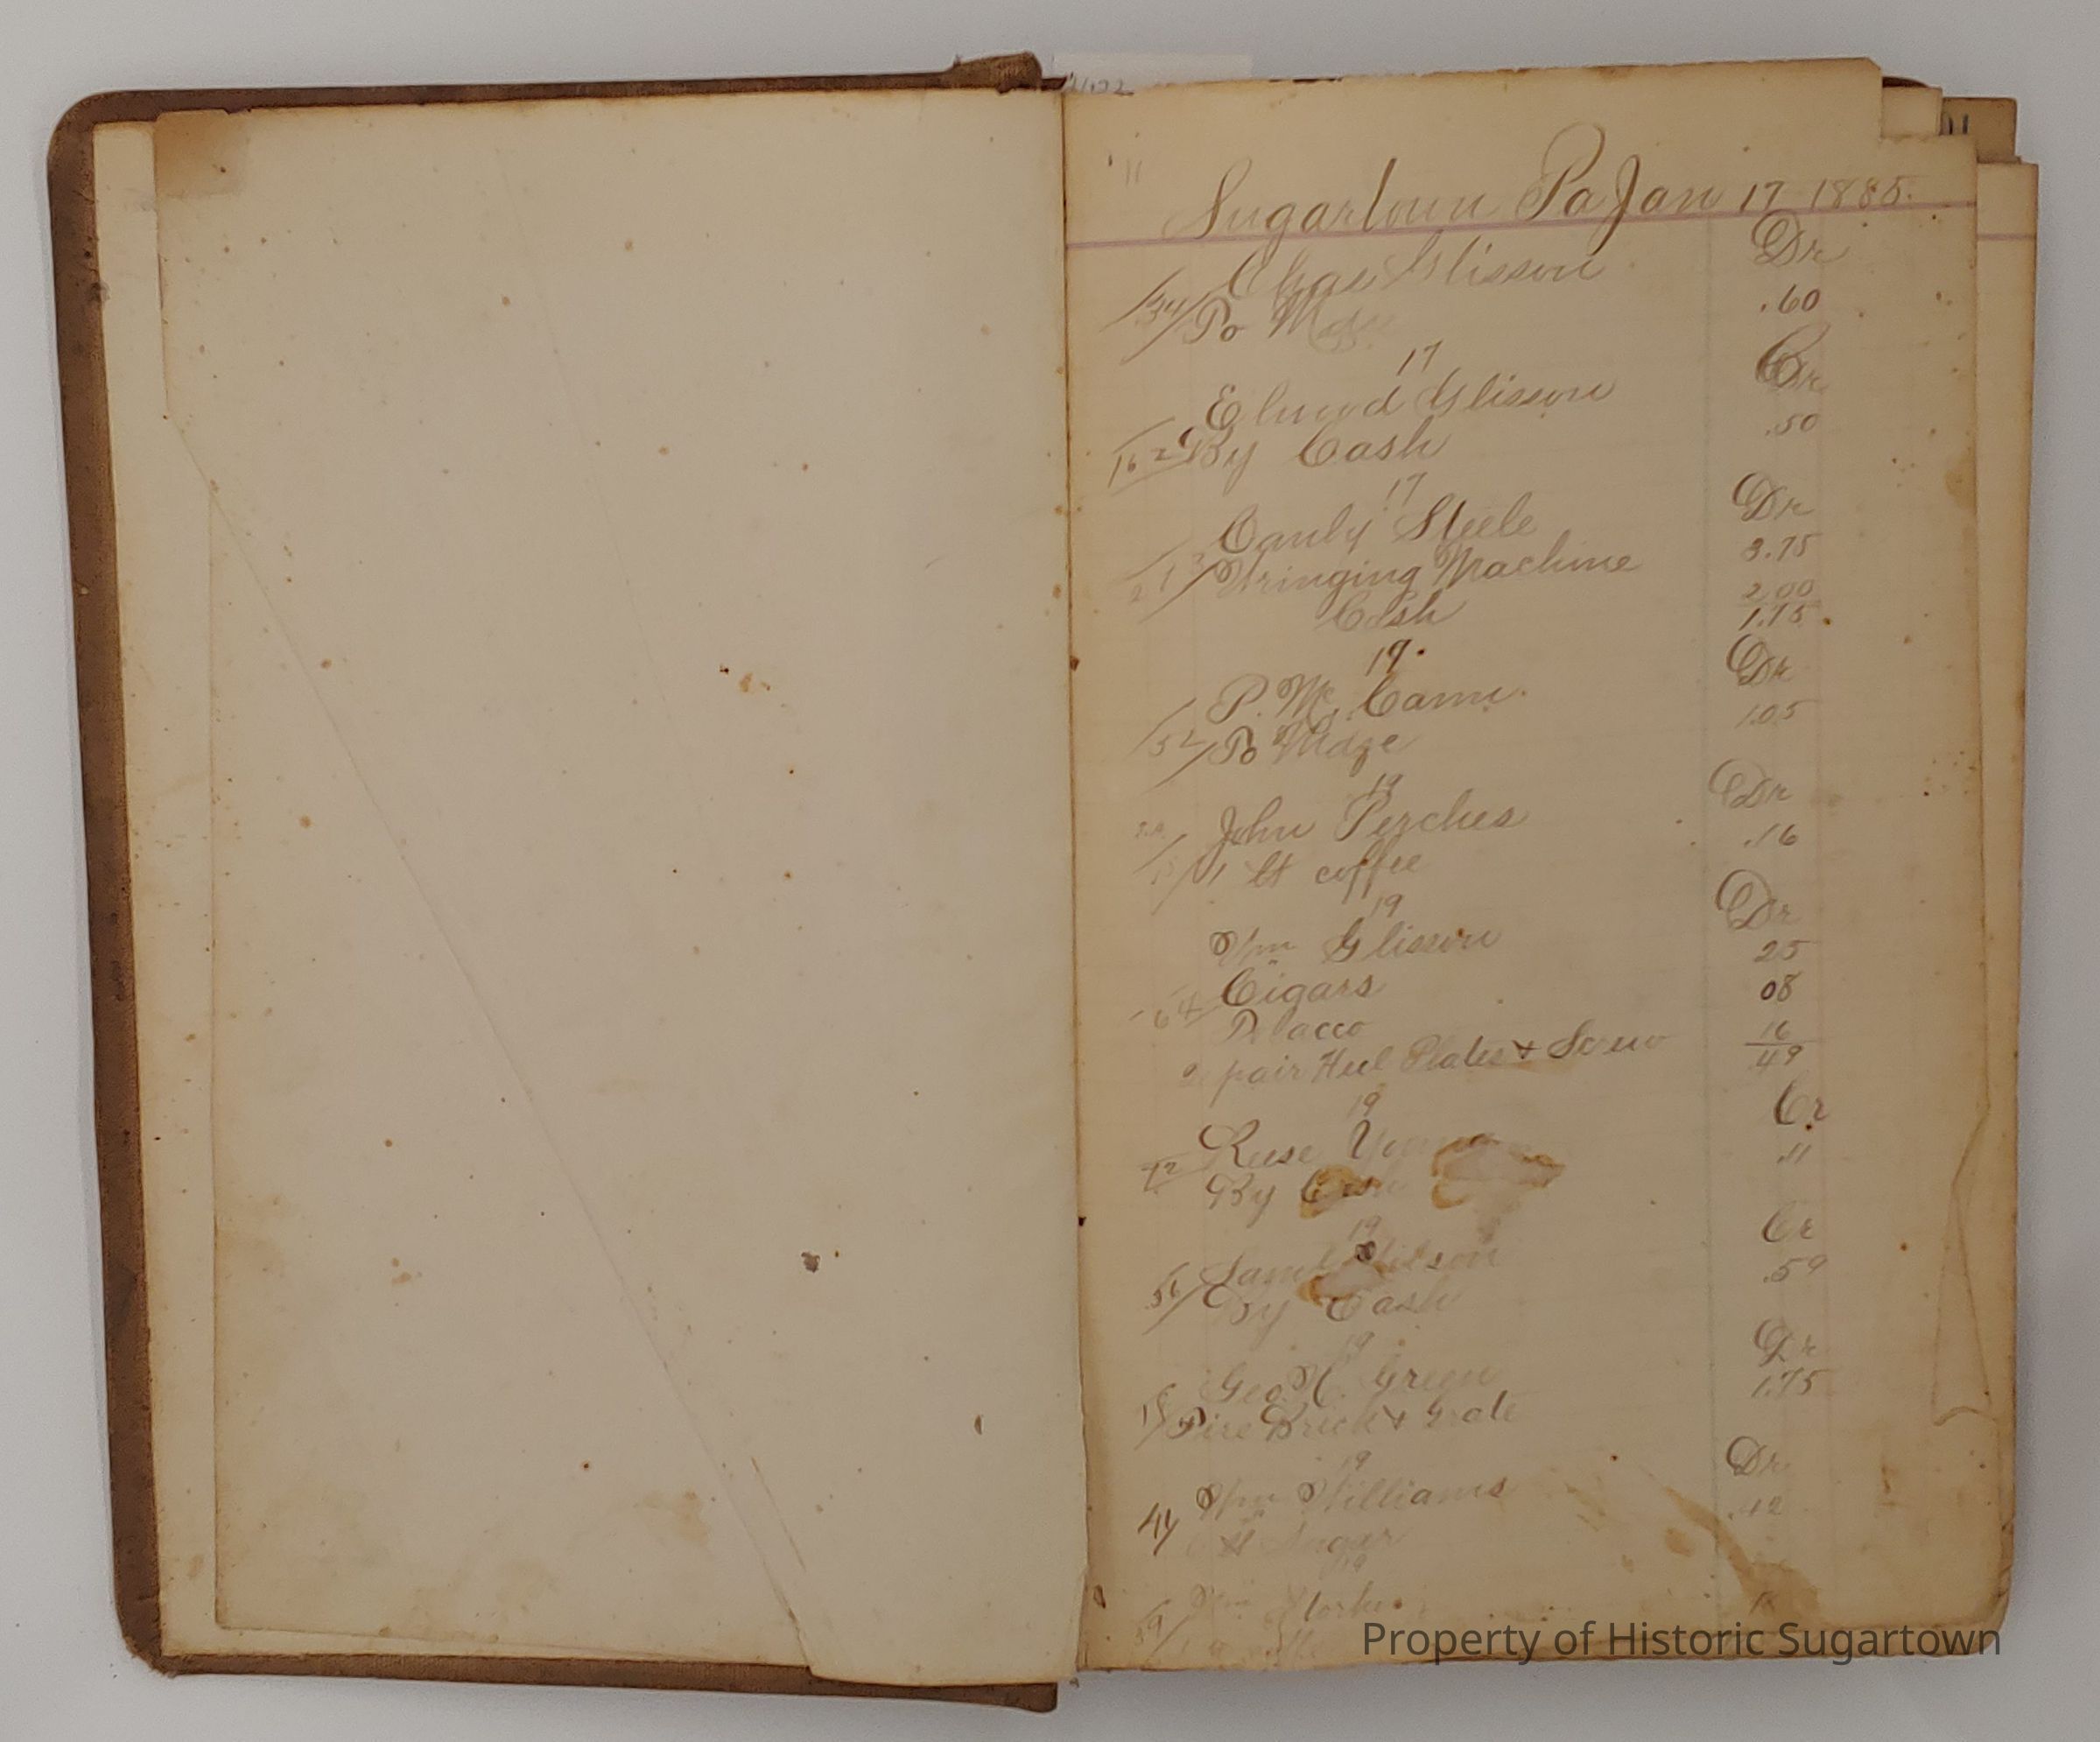 Sugartown Pa Jan 17 1885.
Chas Glisson Dr
134 To .60
17
Elwood Glisson Cr
162 By Cash .50
17
Steele Dr
213 Wringing Machine 3.75
Cash 2.00
1.75
19.
P. Mc Cann. Dr
52 To 1.05
19
John Perches Dr
1 lb coffee .16
19
Wm Glisson Dr
64 Cigars 25
Tobacco 08
pair Heel Plates & Screws 16
49
19
Reese Cr
72 By Cash .11
19
Saml Cr
56 By Cash .59
19
Geo. H. Green Dr
Fire Brick & Grate 1.75
19
Wm Williams Dr
44 Sugar .42
19
Wm
59
Property of Historic Sugartown